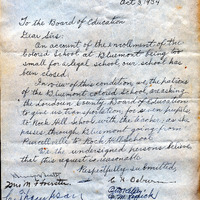 Oct 3, 1934
To the Board of Education
Dear Sirs
On account of the enrollment of the
Colored School at Bluemont being too
small for a legal school, our school has
been closed.
In view of this condition, we the patrons
of the Bluemont colored School are asking
the Loudoun County Board of Education
to give us transportation for seven pupils
to Rock Hill School with the teacher, as she
passes through Bluemont going from
Purcellville to Rock Hill School.
We the undersigned persons believe
that this request is reasonable.
Respectfully submitted,